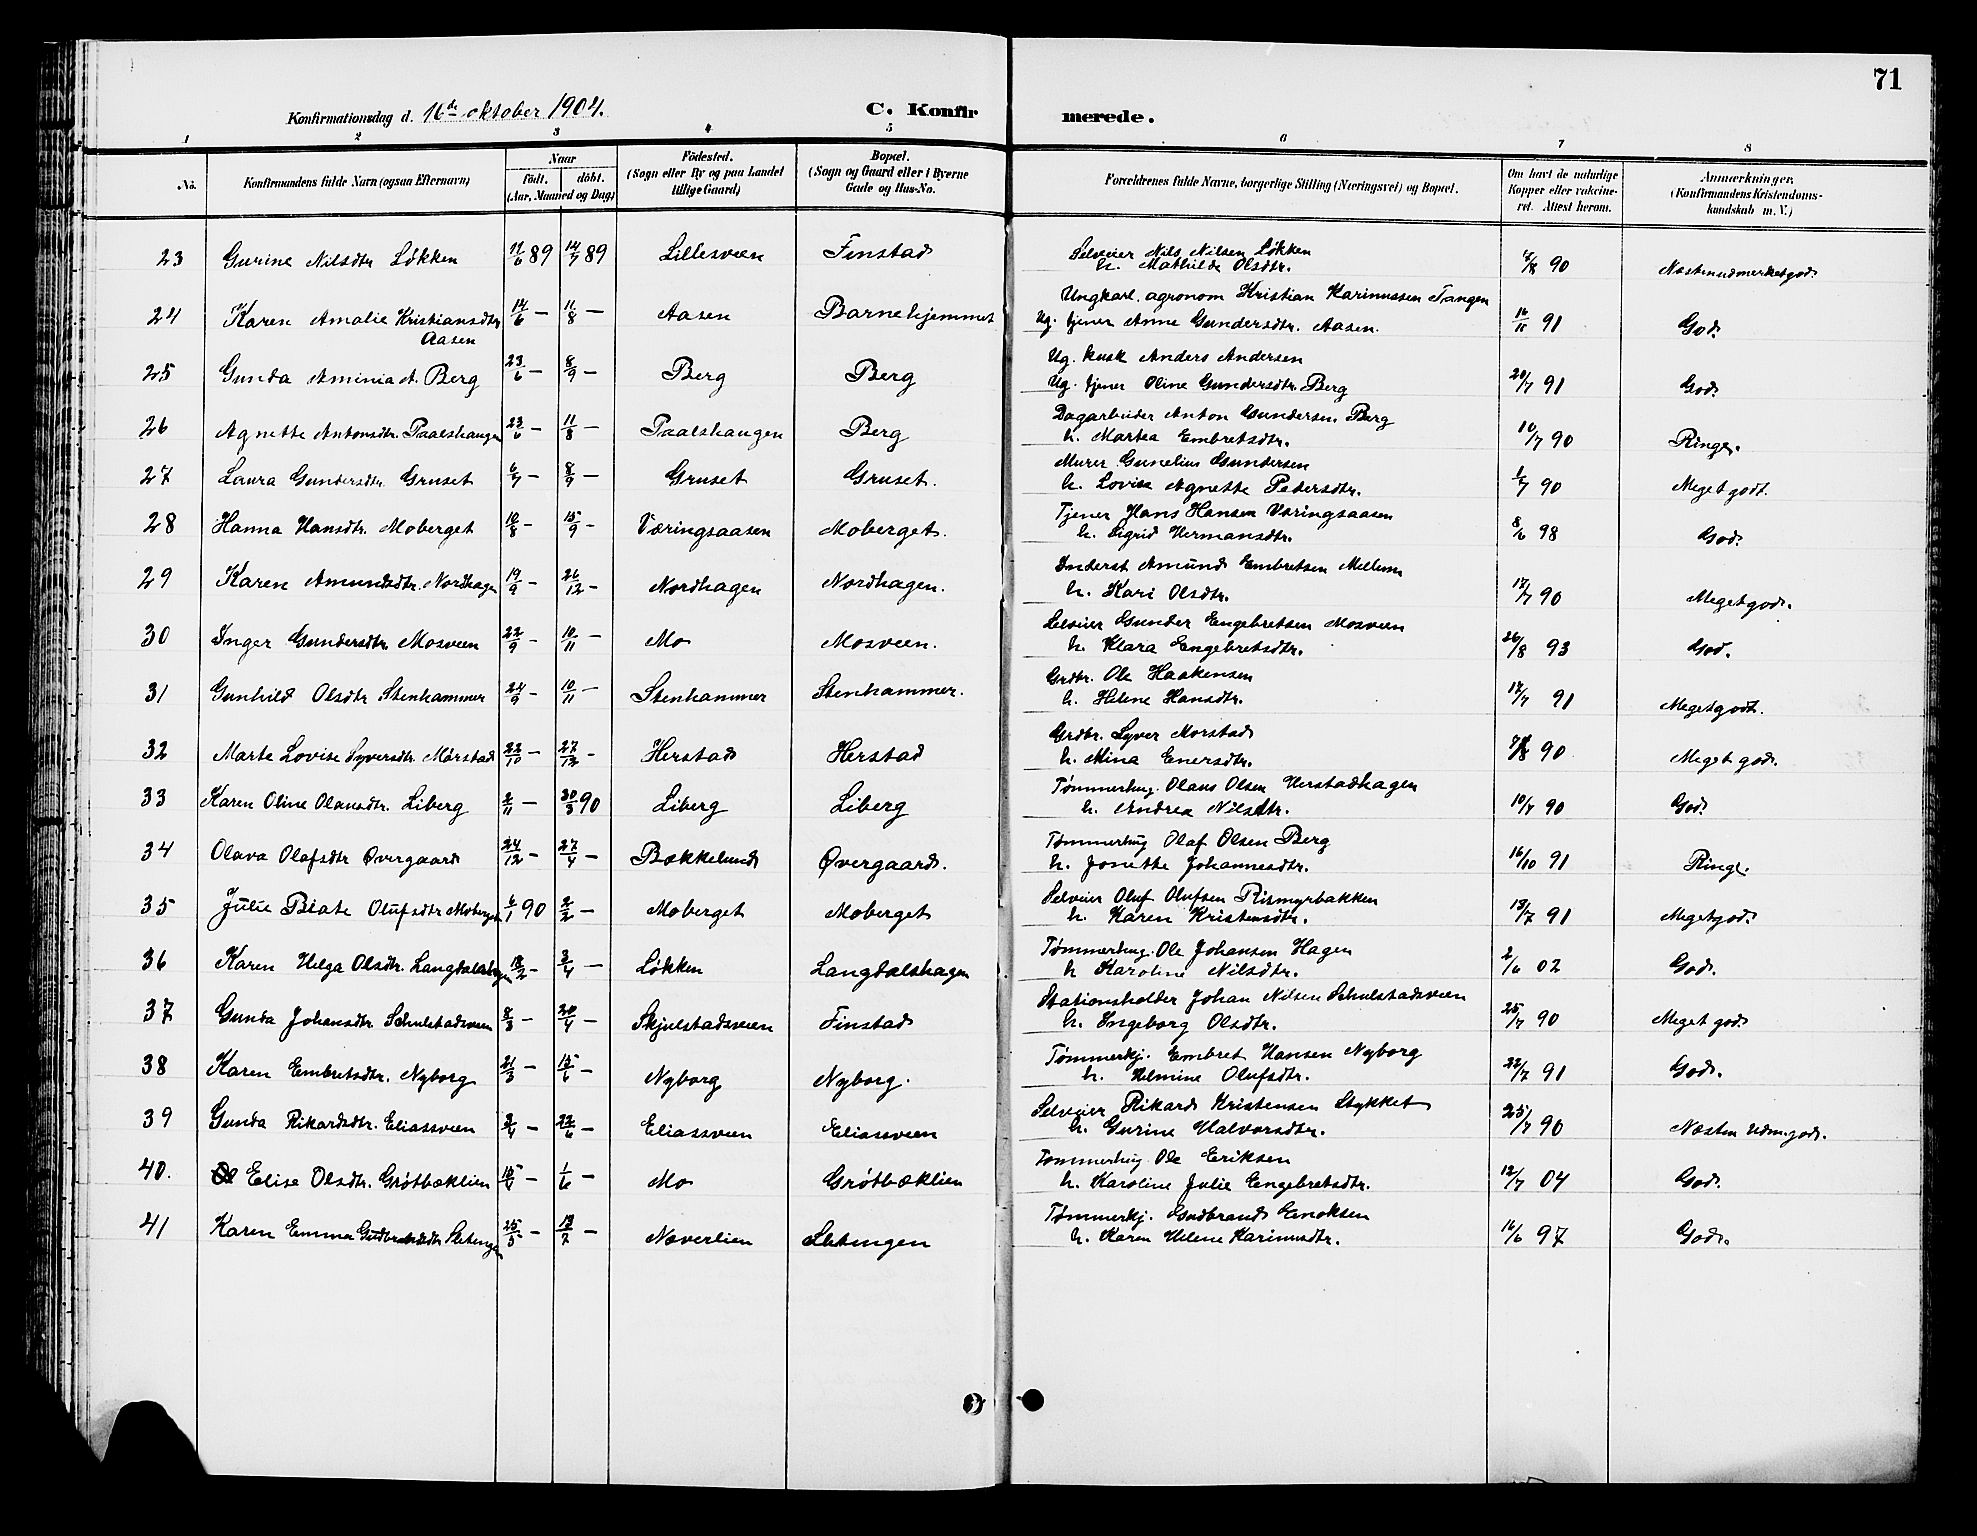 71
Konfirmationsdag d. 16de oktober 1904.
C. Konfirmerede.
1 2 3 4 5 6 7 8
No. Konfirmandens fulde Navn (ogsaa Efternavn) Naar Födt. döbt. (Aar, Maaned og Dag) Födested. (Sogn eller By og paa Landet tillige Gaard) Bopæl. (Sogn og Gaard eller i Byerne Gade og Hus-No. Forældrenes fulde Navne, borgerlige Stilling (Næringsvei) og Bopæl. Om havt de naturlige Kopper eller vaccineret. Attest herom. Anmærkninger. (Konfirmandens Kristendomskundskab m. V.)
23 Gurine Nilsdtr Løkken 11/6 89 14/7 89 Lillesveen Finstad Selveier Nils Nilsen Løkken
h. Mathilde Olsdtr. 90 Næsten udmerket god.
24 Karen Amalie Kristiansdtr Aasen 14/6 — 11/8 — Aasen Barnehjemmet Ungkarl. agronom Kristian Karinussen Tangen
Ug. tjener Anne Gundersdtr. Aasen. 91 God.
25 Gunda Aminia A. Berg 23/6 — 8/9 — Berg Berg Ug. kusk Anders Andersen
Ug. tjener Oline Gundersdtr. Berg 20/7 91 God.
26 Agnethe Antonsdtr. Paalshaugen 23/6 — 11/8 — Paalshaugen Berg Dagarbeider Anton Gundersen Berg
h. Martea Embretsdtr. 10/7 90 Ringe.
27 Laura Gundersdtr. Gruset 6/7 — 8/9 — Gruset Gruset. Murer Gunelius Gundersen
h. Lovise Agnette Petersdtr. 90 Meget godt.
28 Hanna Hansdtr. Moberget 10/8 — 15/9 — Væringsaasen Moberget. Tjener Hans Hansen Væringsaasen
h. Sigrid Hermansdtr. 8/6 98 God.
29 Karen Amundsdtr. Nordhagen 19/9 — 26/12 — Nordhagen Nordhagen. Inderst Amund Embretsen Mellum
h. Kari Olsdtr. 17/7 90 Meget god.
30 Inger Gundersdtr. Mosveen 22/9 — 10/11 — Mo Mosveen. Selveier Gunder Engebretsen Mosveen
h. Klara Engebretsdtr. 26/8 93 God.
31 Gunhild Olsdtr Stenhammer 24/9 — 10/11 — Stenhammer Stenhammer. Grdbr. Ole Haakensen
h. Helene Hansdtr. 17/7 91 Meget godt.
32 Marte Lovise Syversdtr. Mørstad 22/10 — 27/12 — Herstad Herstad Grdbr. Syver Morstad
h. Mina Enersdtr. 90 Meget god.
33 Karen Oline Olausdtr. Liberg 2/11 — 30/3 90 Liberg Liberg Tømmerhug. Olaus Olsen Herstadhagen
h. Andrea Nilsdtr. 10/7 90 God.
34 Olava Olafsdtr Øvergaard 24/12 — 27/4 — Bækkelund Øvergaard. Tømmerhug Olaf Olsen Berg
h. Jonette Johannesdtr. 16/10 91 Ringe.
35 Julie Beate Olufsdtr Moberget 6/1 90 2/2 — Moberget Moberget Selveier Oluf Olufsen Rismyrbakken
h. Karen Kristensdtr. 18/7 91 Meget god.
36 Karen Helga Olsdtr. Langdalshagen 18/2 — 3/4 — Løkken Langdalshagen Tømmerhug. Ole Johansen Hagen
h Karoline Nilsdtr. 2/6 02 God.
37 Gunda Johansdtr. Schulstadsveen 8/3 — 20/4 — Skjulstadsveen Finstad Stationsholder Johan Nilsen Schulstadsveen
h. Ingeborg Olsdtr. 25/7 90 Meget god.
38 Karen Embretsdtr. Nyborg 21/3 — 15/6 — Nyborg Nyborg. Tømmerkj. Embret Hansen Nyborg
h. Helmine Olufsdtr. 22/7 91 God.
39 Gunda Rikardsdtr. Eliassveen 3/4 — 22/6 — Eliassveen Eliassveen Selveier Rikard Kristensen Stykket
h. Gurine Halvorsdtr. 25/7 90 Næsten Udm. god.
40. Elise Olsdtr. Grøtbæklien 15/4 — 1/6 — Mo Grøtbæklien Tømmerhug. Ole Eriksen
h. Karoline Julie Engebretsdtr. 12/7 04 God.
41 Karen Emma Gudbrandsdtr Sletengen 25/5 — 13/7 — Næverlien Sletengen Tømmerkj. Gudbrand Enoksen
h. Karen Helene Karinusdtr. 16/6 97 God.